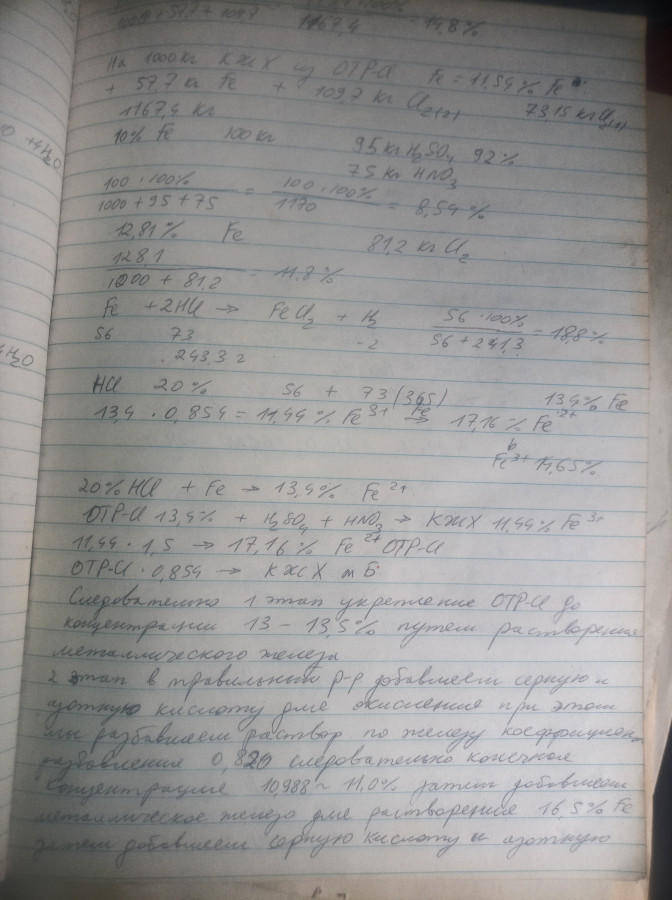 1167,4 = 14,8%
На 1000 кг КЖХ из ОТР-Cl Fe = 11,54% Fe
+ 57,7 кг Fe + 109,7 кг Cl₂(г) 73,15 кг Cl₂(г)
1167,4 кг
10% Fe 100 кг 95 кг H₂SO₄ 92%
75 кг HNO₃
100 · 100% / 1000 + 95 + 75 = 100 · 100% / 1170 = 8,54%
12,81% Fe 81,2 кг Cl₂
128,1 / 1000 + 81,2 = 11.8%
Fe + 2HCl → FeCl₂ + H₂ 56 · 100% / 56 + 241,3 = 18,8%
56 73 -2
243.3 г
HCl 20% 56 + 73 (365) 13,4% Fe
13,4 · 0,854 = 11,44% Fe³⁺ Fe → 17,16% Fe²⁺
в
Fe³⁺ 14,65%
20% HCl + Fe → 13,4% Fe²⁺
ОТР-Cl 13,4% + H₂SO₄ + HNO₃ → КЖХ 11,44% Fe³⁺
11,44 · 1,5 → 17,16% Fe²⁺ ОТР-Cl
ОТР-Cl · 0,854 → КЖХ м Б
Следовательно 1 этап укрепление ОТР-Cl до
концентрации 13 – 13,5% путем растворения
металлического железа
2 этап в травильный р-р добавляем серную и
азотную кислоту для окисления при этом
мы разбавляем раствор по железу коэффициент
разбавления 0,820 следовательно конечная
концентрация 10,988 ~ 11,0% затем добавляем
металлическое железо для растворения 16,5% Fe
затем добавляем серную кислоту и азотную